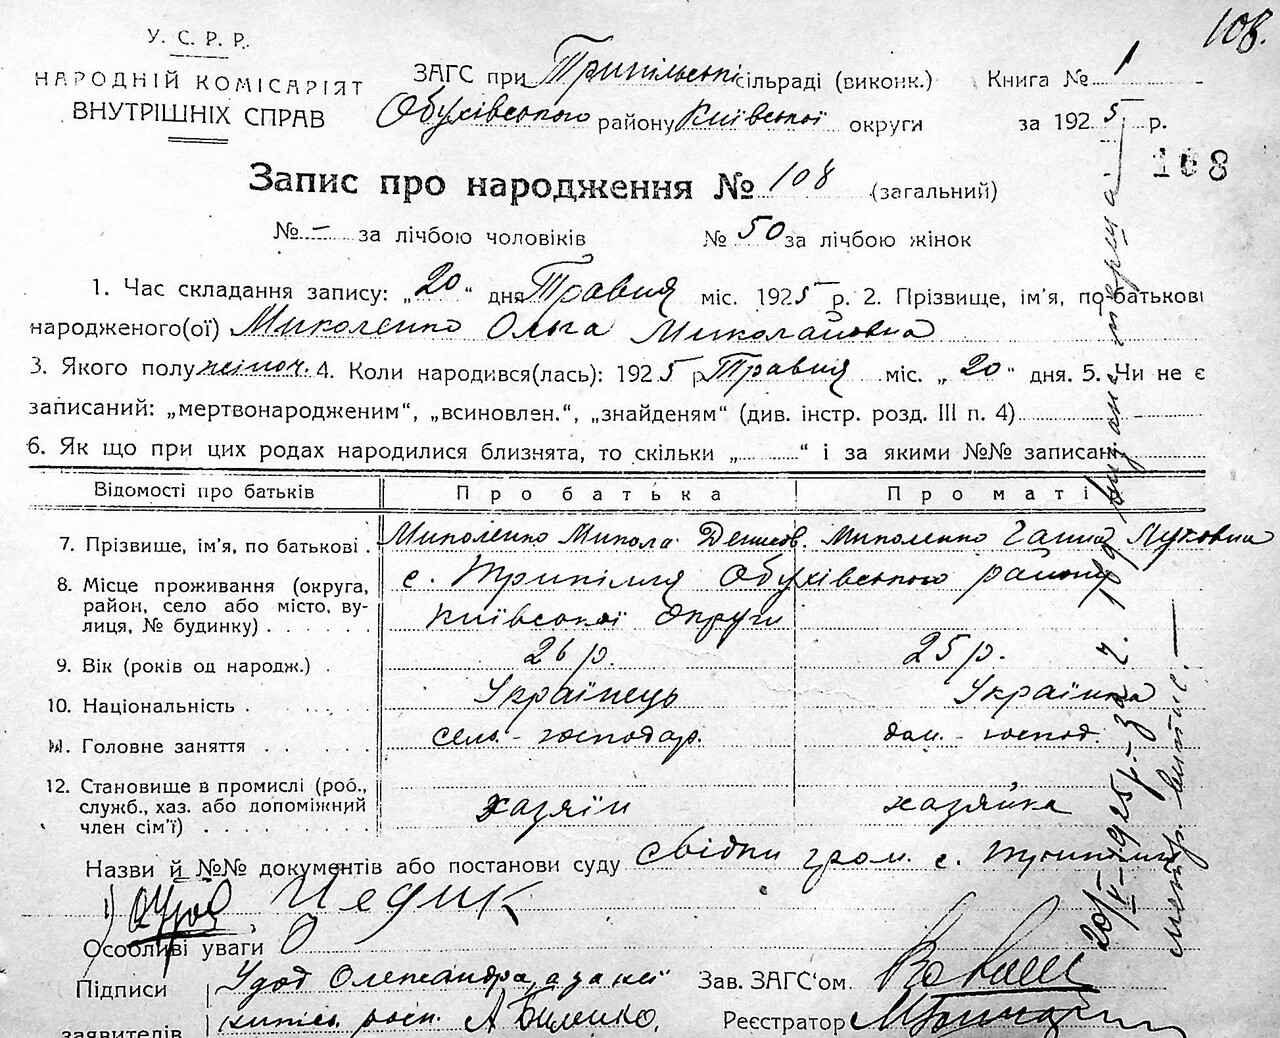 108.
У. С. Р. Р.
НАРОДНІЙ КОМІСАРІЯТ
ВНУТРІШНІХ СПРАВ
ЗАГС при Трипільські сільраді (виконк.) Книга № 1
Обухівського району Київської округи за 1925 р.
108
Запис про народження № 108 (загальний)
№ – за лічбою чоловіків № 50 за лічбою жінок
1. Час складання запису: „20“ дня Травня міс. 1925 р. 2. Прізвище, ім'я, по батькові
народженого(ої) Миколенко Ольга Миколаївна
3. Якого полу жіноч. 4. Коли народився(лась): 1925 р Травня міс. „20“ дня. 5. Чи не є
записаний: „мертвонародженим“, „всиновлен.“, „знайденям“ (див. інстр. розд. III п. 4)
6. Як що при цих родах народилися близнята, то скільки „ “ і за якими №№ записані
Відомості про батьків Про батька Про маті
7. Прізвище, ім'я, по батькові . Миколенко Микола Денисов. Миколенко Ганна Луковна
8. Місце проживання (округа, с. Трипілля Обухівського району
район, село або місто, ву- Київської округи
лиця, № будинку)
9. Вік (років од народж.) . 26 р. 25 р.
10. Національність . Українець Українка
11. Головне заняття сель.-господар. дом.-господ.
12. Становище в промислі (роб.,
служб., хаз. або допоміжний хазяїн хазяйка
член сім'ї)
Назви й №№ документів або постанови суду свідки гром. с. Трипілля
1) Удод
Особливі уваги
Підписи Удод Олександра, а за неї
заявителів А Биленко,
Зав. ЗАГС'ом
Реєстратор
20/V-1925 р. за ч. метр. витяг.